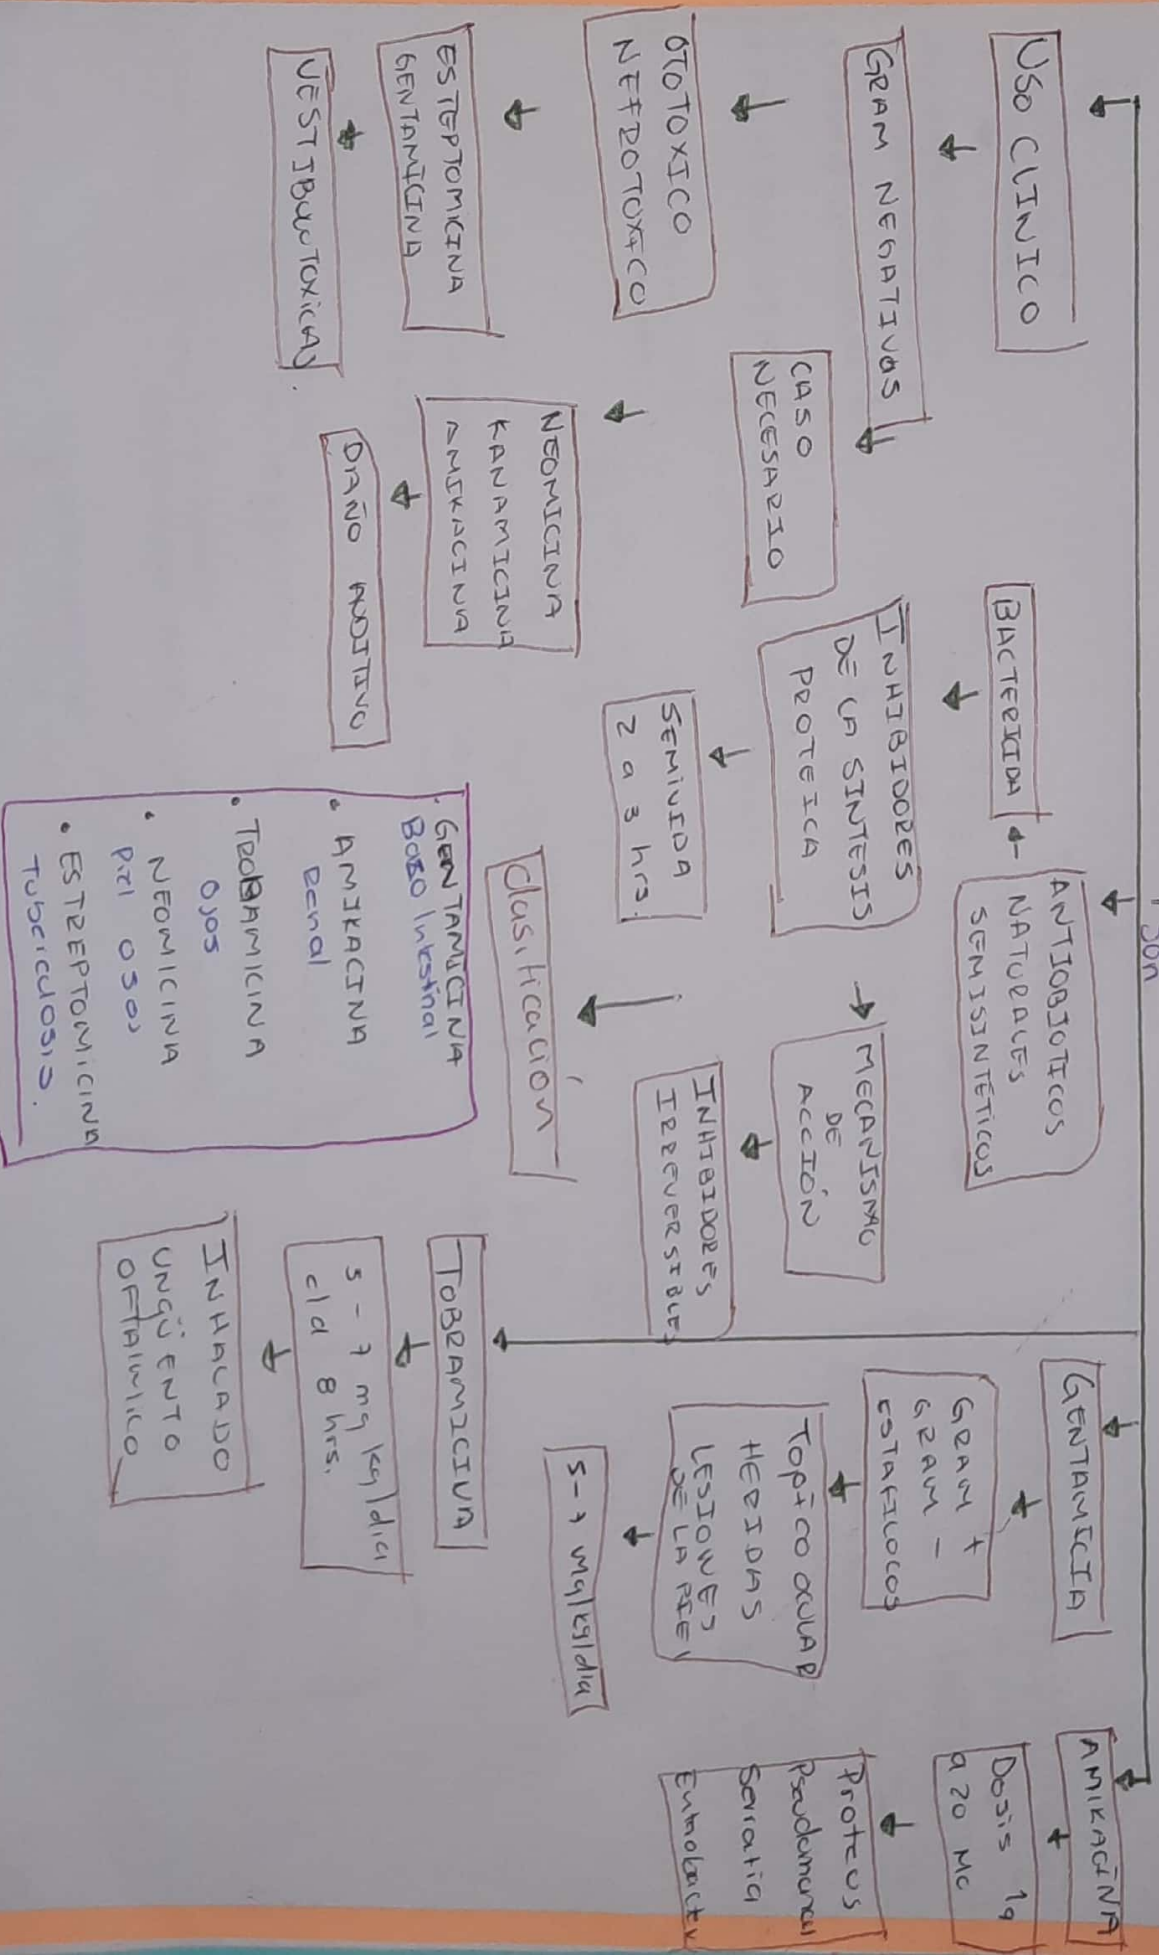 són
USO CLINICO
GRAM NEGATIVOS
OTOTOXICO
NEFROTOXICO
ESTEPTOMICINA
GENTAMICINA
VESTIBULOTOXICAS.
CASO
NECESARIO
NEOMICINA
KANAMICINA
AMIKACINA
DAÑO AUDITIVO
ANTIOBIOTICOS
NATURALES
SEMISINTÉTICOS
BACTERICIDA
INHIBIDORES
DE LA SINTESIS
PROTEICA
SEMIVIDA
2 a 3 hrs.
MECANISMO
DE
ACCIÓN
INHIBIDORES
IRREVERSIBLES
Clasificación
• GENTAMICINA
Bazo Intestinal
• AMIKACINA
Renal
• TROBAMICINA
Ojos
• NEOMICINA
Piel osos
• ESTREPTOMICINA
Tuberculosis.
GENTAMICIA
GRAM +
GRAM -
ESTAFILOCOS
TOPICO OCULAR
HERIDAS
LESIONES
DE LA PIEL
5-7 mg/kg/dia
TOBRAMICINA
5-7 mg kg/dia
c/d 8 hrs.
INHALADO
UNGÜENTO
OFTALMICO
AMIKACINA
Dosis 1g
a 20 MG
Proteus
Serratia